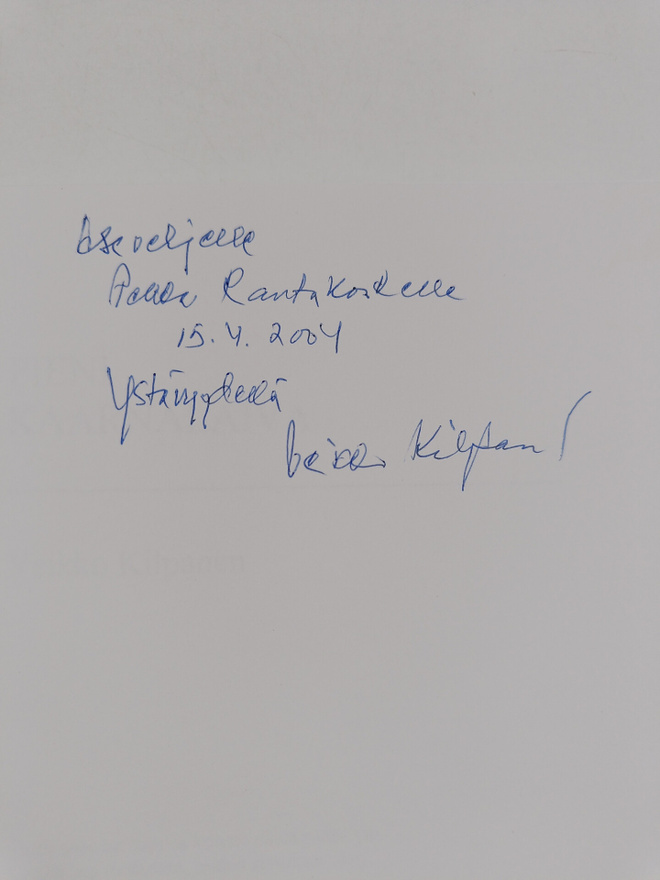 Aseveljelle
Pekka Rantakoskelle
15.4.2004
Ystävyydellä
Veikko Kilpanen